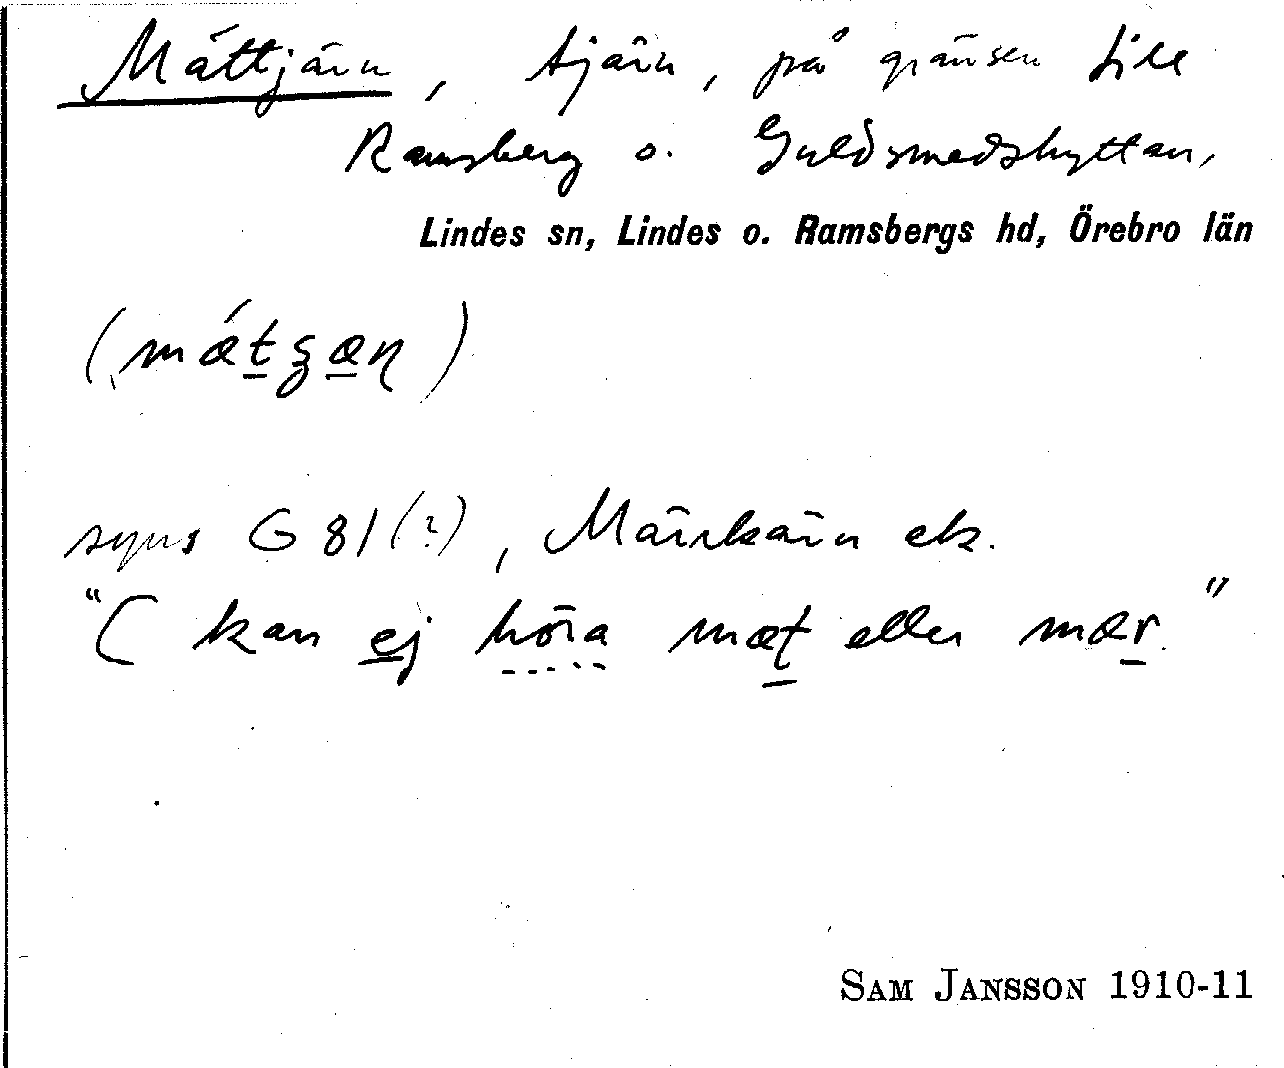 Mättjärn, tjärn, på gränsen till
Ramsberg o. Guldsmedshyttan,
Lindes sn, Lindes o. Ramsbergs hd, Örebro län
(mǽtʒæɳ)
syns G 81(?), Märrkärn ek.
"( kan ej höra mæt eller mær."
SAM JANSSON 1910-11